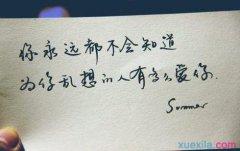 你永远都不会知道
为你乱想的人有多么爱你.
Summer
xuexila.com